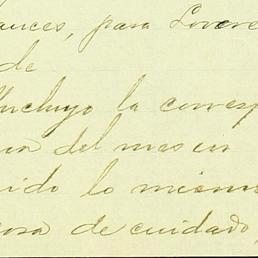 ances, para Lovere
de
Incluyo la corresp
na del mes in
ido lo mismo
cosa de cuidado,